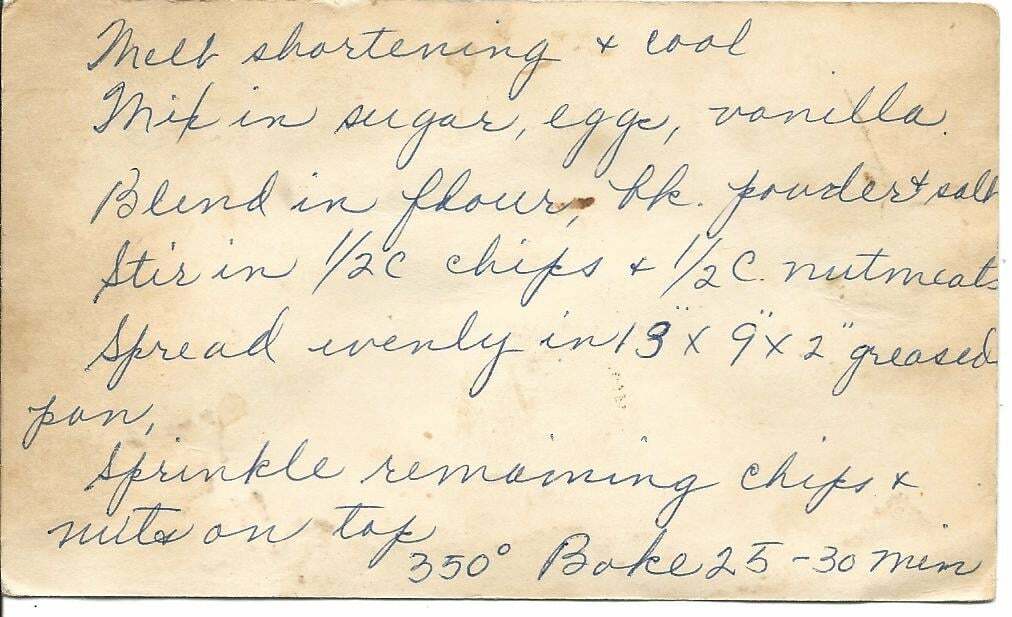 Melt shortening & cool
Mix in sugar, eggs, vanilla.
Blend in flour, bk. powder & salt
Stir in 1/2 C chips & 1/2 C. nutmeats
Spread evenly in 13" x 9" x 2" greased
pan,
Sprinkle remaining chips &
nuts on top
350° Bake 25-30 min